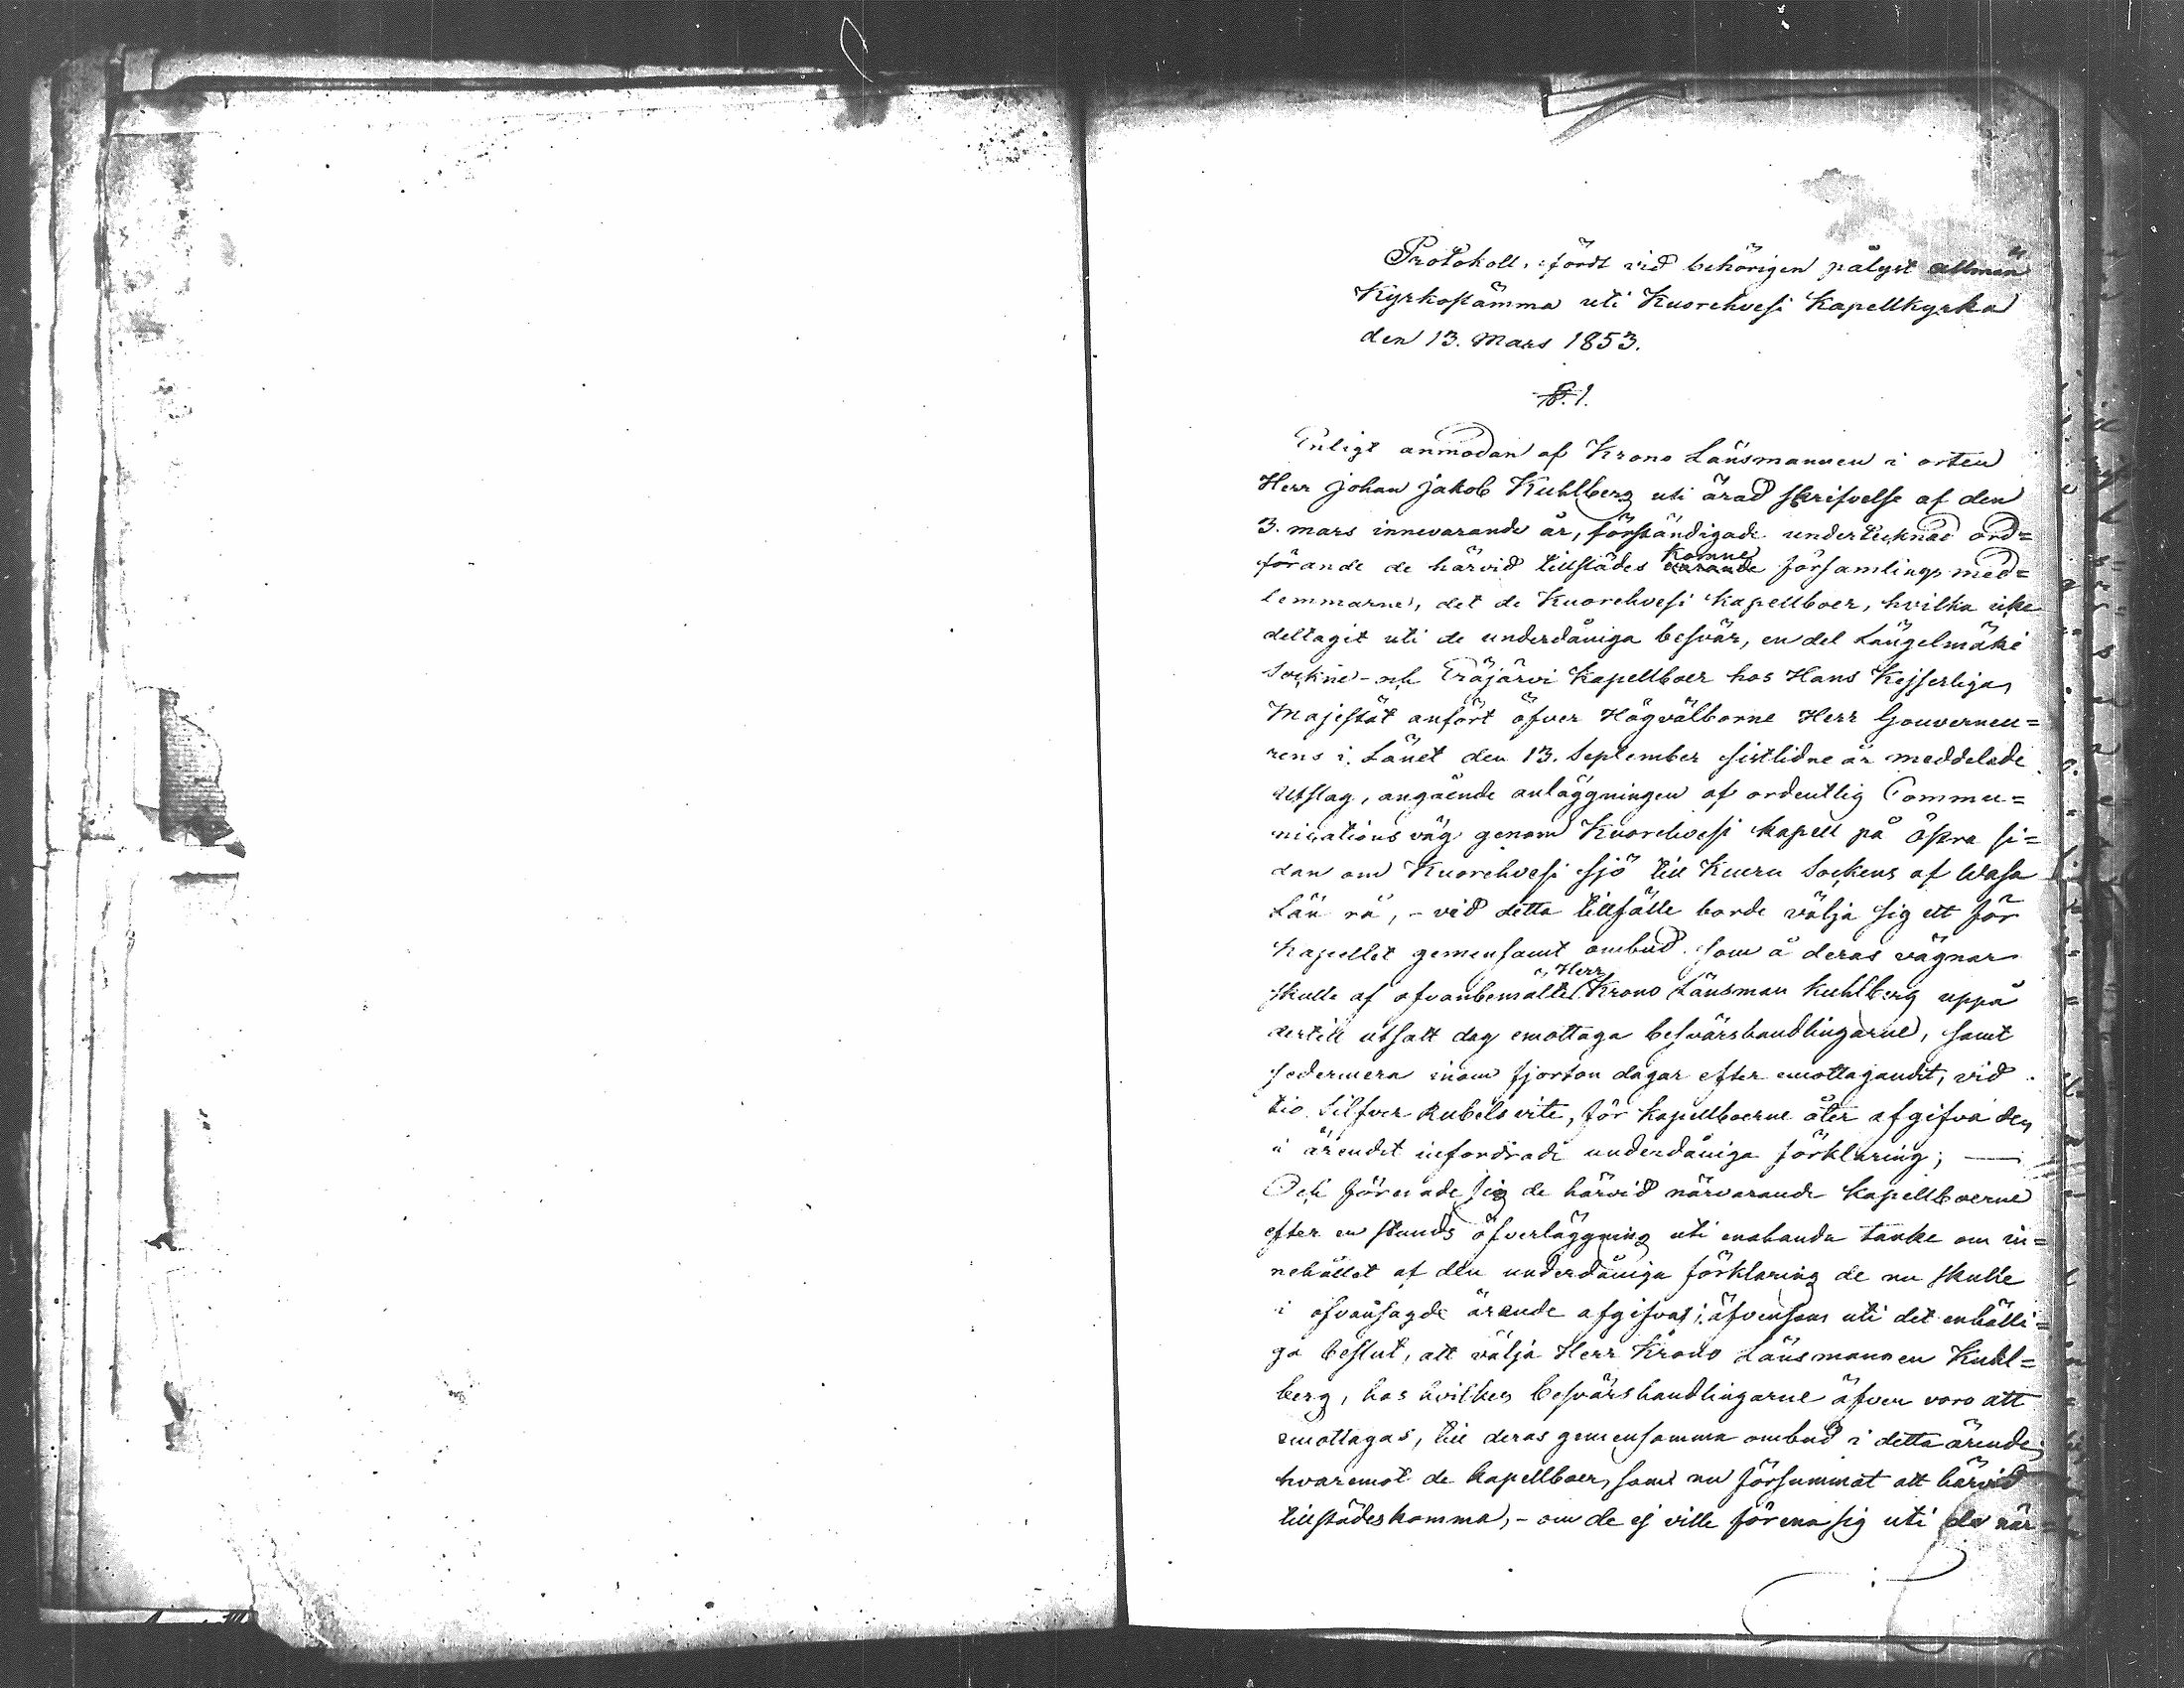 Protokoll, fördt vid behörigen pålyst allmän
Kyrkostämma uti Kuorehvesi Kapellkyrka
den 13. Mars 1853.
§. 1.
Enligt anmodan af Krono Länsmannen i orten
Herr Johan Jakob Kuhlberg uti ärad skrifvelse af den
3. mars innevarande år, förständigade undertecknad ord=
förande de härvid tillstädes komne församlings med=
lemmarne, det de Kuorehvesi Kapellboer, hvilka icke
deltagit uti de underdåniga besvär, en del Längelmäki
Sockne- och Eräjärvi Kapellboer hos Hans Kejserliga
Majestät anfört öfver Högvälborne Herr Gouverneu=
rens i Länet den 13. September sistlidne år meddelade
utslag, angående anläggningen af ordentlig Commu=
nications väg genom Kuorehvesi kapell på östra si=
dan om Kuorehvesi sjö till Kuru Sockens af Wasa
Län rå, - vid detta tillfälle borde välja sig ett för
Kapellet gemensamt ombud som å deras vägnar
skulle af ofvanbemälte Herr Krono Länsman Kuhlberg uppå
dertill utsatt dag emottaga besvärshandlingarne, samt
sedermera inom fjorton dagar efter emottagandet, vid
tio Silfver Rubels vite, för kapellboerne åter afgifva den
i ärendet infordrade underdåniga förklaring; —
Och förenade sig de härvid närvarande Kapellboerne
efter en stunds öfverläggning uti enahanda tanke om in=
nehållet af den underdåniga förklaring de nu skulle
i ofvansagde ärende afgifva; äfvensom uti det enhälli=
ga beslut, att välja Herr Krono Länsmannen Kuhl=
berg, hos hvilken besvärshandlingarne äfven voro att
emottagas, till deras gemensamma ombud i detta ärende;
hvaremot de kapellboer, som nu försummat att härvid
tillstädeskomma, - om de ej ville förena sig uti de när=